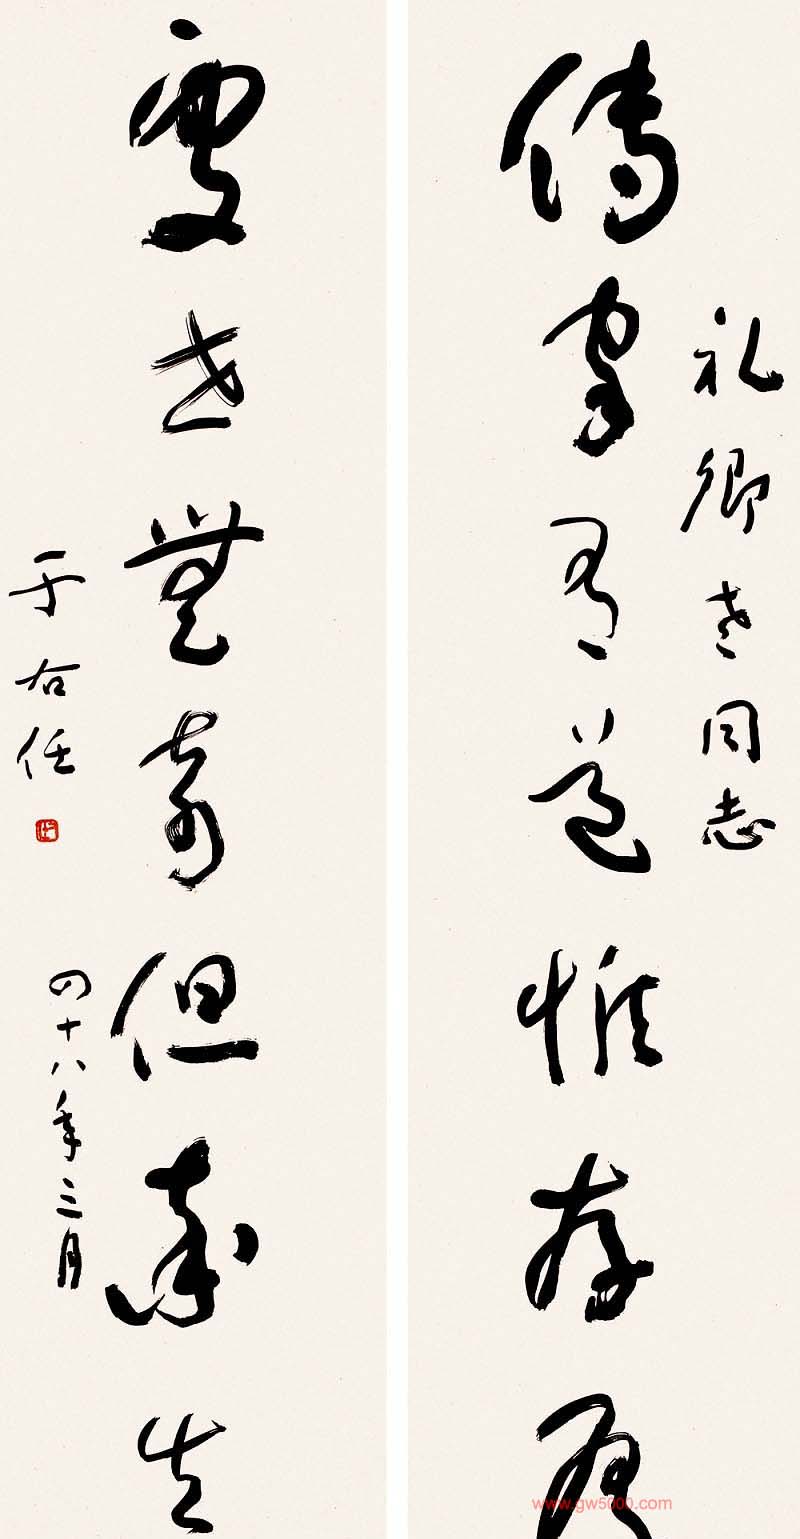 礼卿老同志
傳家有道惟存厚
處世無奇但率真
于右任
四十八年三月
www.gw5000.com